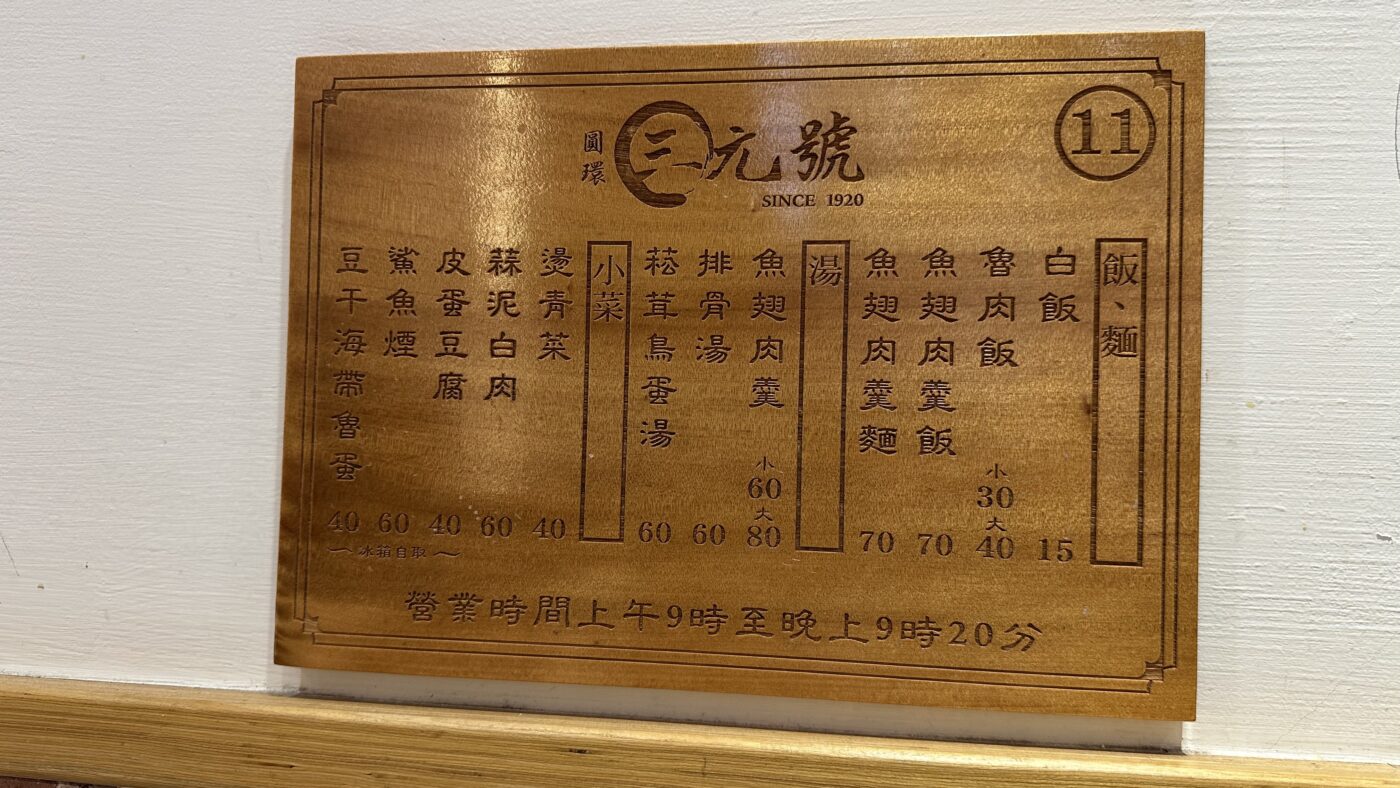 圓環
三元號
SINCE 1920
11
飯、麵
白飯 15
魯肉飯 小30 大40
魚翅肉羹飯 70
魚翅肉羹麵 70
湯
魚翅肉羹 小60 大80
排骨湯 60
菘茸鳥蛋湯 60
小菜
燙青菜 40
蒜泥白肉 60
皮蛋豆腐 40
鯊魚煙 60
豆干海帶魯蛋 40
冰箱自取
營業時間上午9時至晚上9時20分